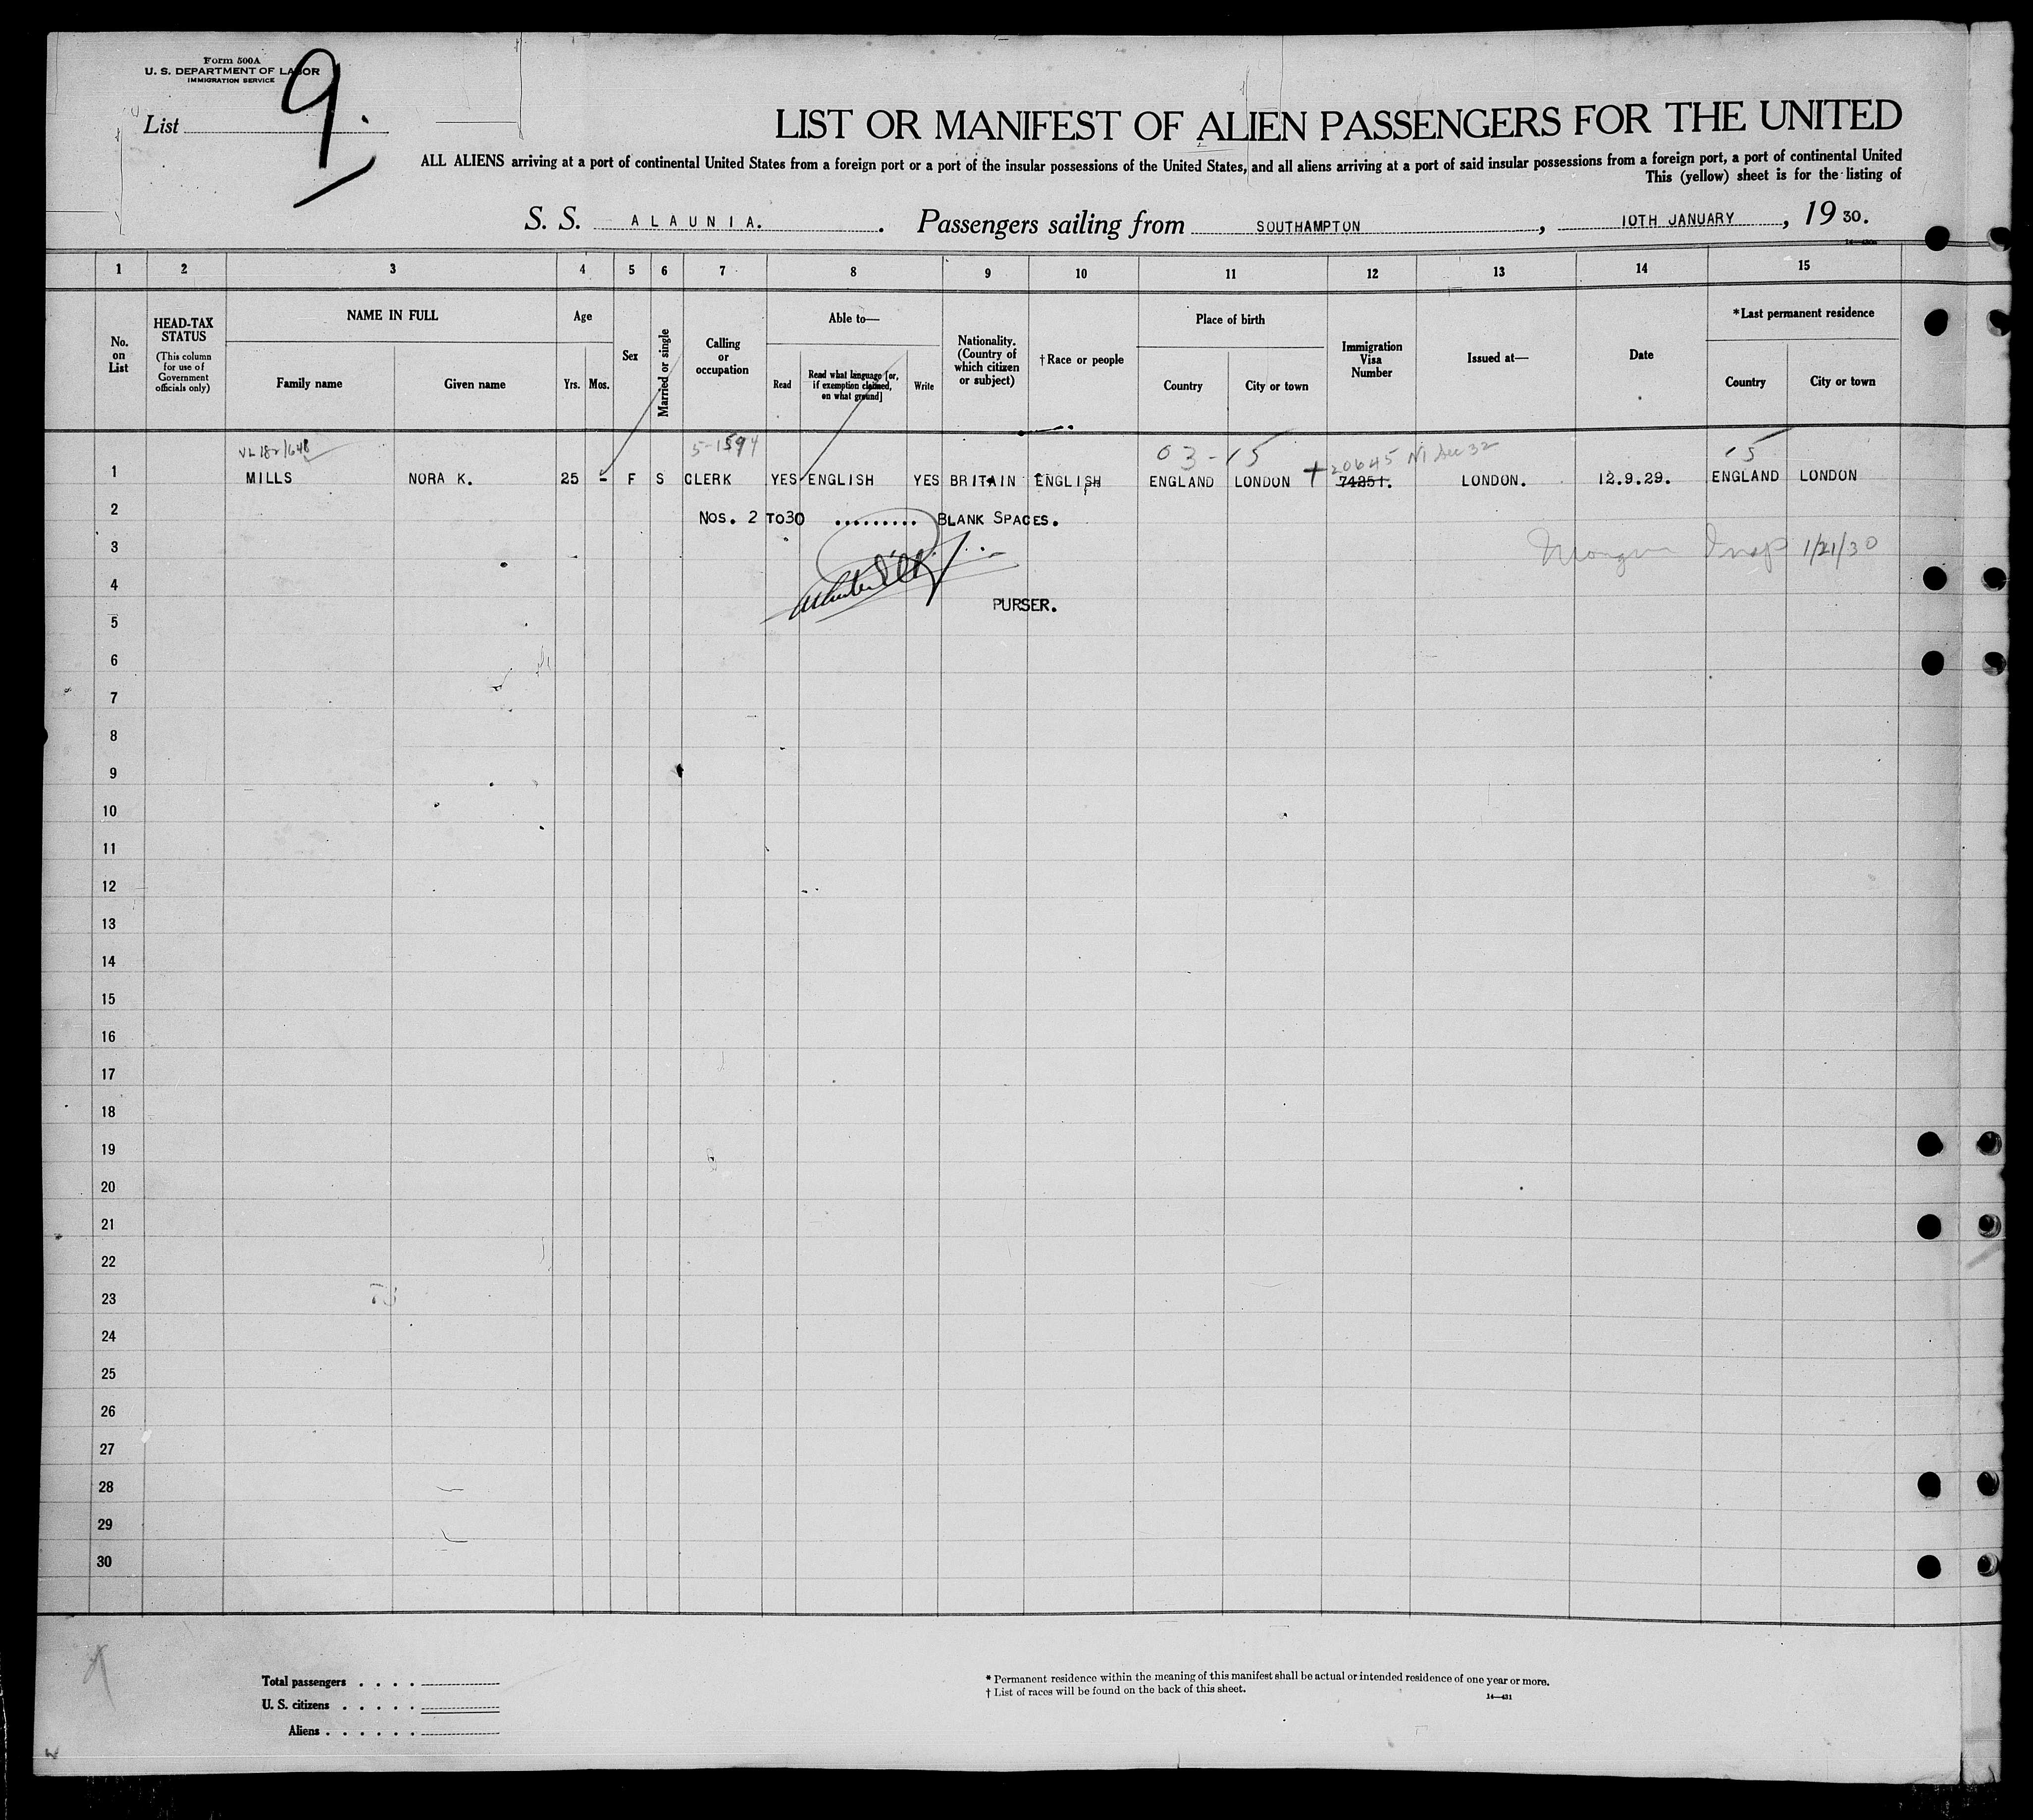 Form 500A
U. S. DEPARTMENT OF LABOR
IMMIGRATION SERVICE
List 9.
LIST OR MANIFEST OF ALIEN PASSENGERS FOR THE UNITED
ALL ALIENS arriving at a port of continental United States from a foreign port or a port of the insular possessions of the United States, and all aliens arriving at a port of said insular possessions from a foreign port, a port of continental United
This (yellow) sheet is for the listing of
S. S. ALAUNIA. Passengers sailing from SOUTHAMPTON, 10TH JANUARY, 1930.
1 2 3 4 5 6 7 8 9 10 11 12 13 14 15
No. on List
HEAD-TAX STATUS
(This column for use of Government officials only)
NAME IN FULL
Family name Given name
Age
Yrs. Mos.
Sex
Married or single
Calling or occupation
Able to—
Read
Read what language [or, if exemption claimed, on what ground]
Write
Nationality. (Country of which citizen or subject)
†Race or people
Place of birth
Country City or town
Immigration Visa Number
Issued at—
Date
*Last permanent residence
Country City or town
5-1594 03-15 20645 15
1 MILLS NORA K. 25 - F S CLERK YES ENGLISH YES BRITAIN ENGLISH ENGLAND LONDON 74251. LONDON. 12.9.29. ENGLAND LONDON
2 NOS. 2 TO30 ......... BLANK SPACES.
3 Insp 1/21/30
4
PURSER.
5
6
7
8
9
10
11
12
13
14
15
16
17
18
19
20
21
22
23
24
25
26
27
28
29
30
Total passengers . . . .
U. S. citizens . . . . .
Aliens . . . . . .
* Permanent residence within the meaning of this manifest shall be actual or intended residence of one year or more.
† List of races will be found on the back of this sheet.
14—431